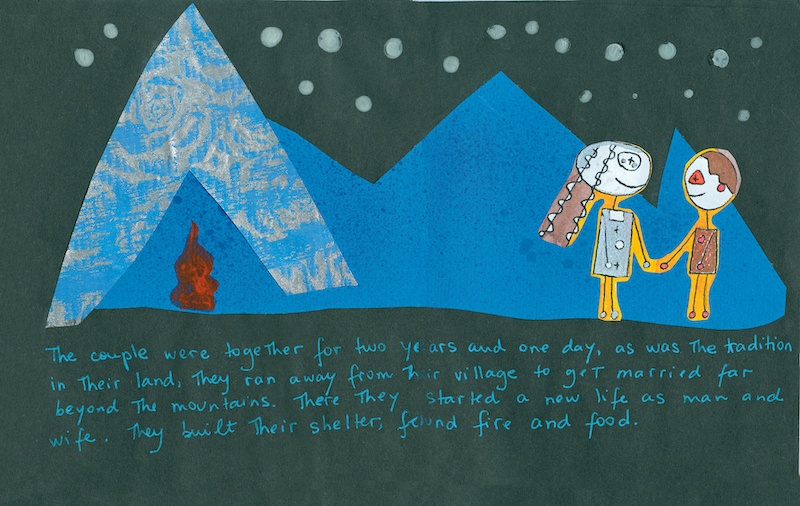 The couple were together for two years and one day, as was the tradition
in their land, they ran away from their village to get married far
beyond the mountains. There they started a new life as man and
wife. They built their shelter, found fire and food.